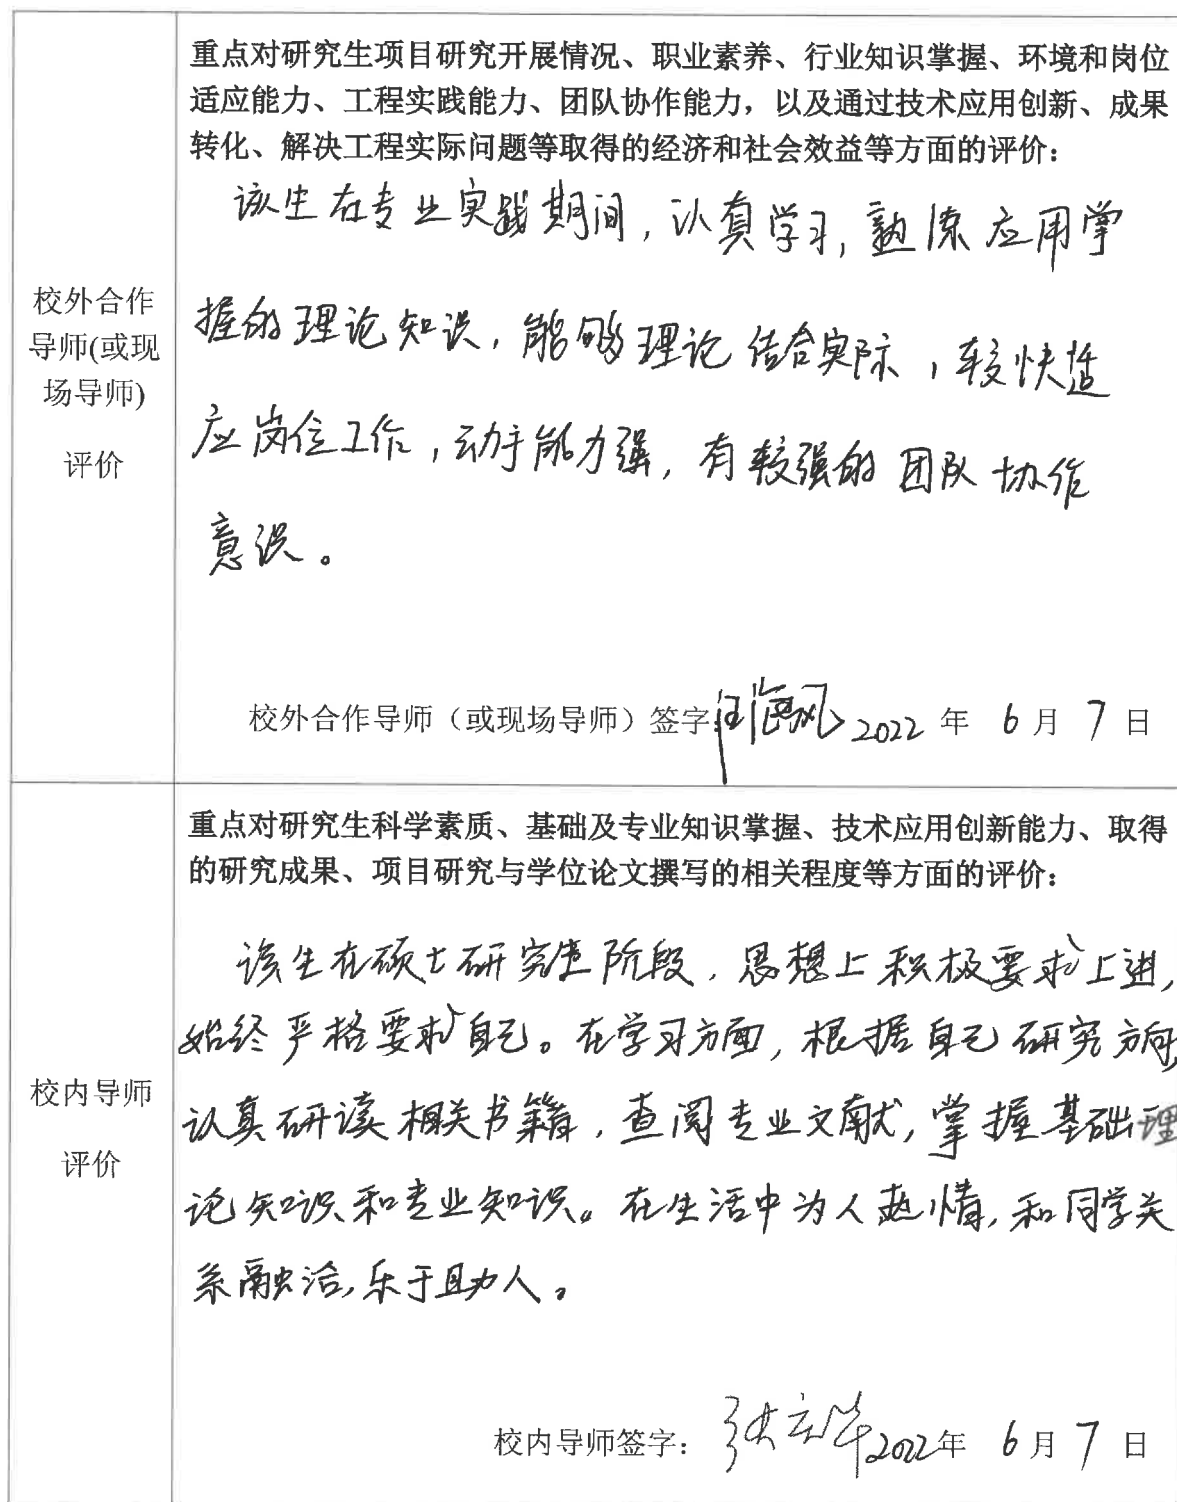 重点对研究生项目研究开展情况、职业素养、行业知识掌握、环境和岗位
适应能力、工程实践能力、团队协作能力，以及通过技术应用创新、成果
转化、解决工程实际问题等取得的经济和社会效益等方面的评价：
校外合作
导师(或现
场导师)
评价
该生在专业实践期间，认真学习，熟练应用掌
握的理论知识，能够理论结合实际，较快适
应岗位工作，动手能力强，有较强的团队协作
意识。
校外合作导师（或现场导师）签字: 2022 年 6 月 7 日
重点对研究生科学素质、基础及专业知识掌握、技术应用创新能力、取得
的研究成果、项目研究与学位论文撰写的相关程度等方面的评价：
校内导师
评价
该生在硕士研究生阶段，思想上积极要求上进，
始终严格要求自己。在学习方面，根据自己研究方向，
认真研读相关书籍，查阅专业文献，掌握基础理
论知识和专业知识。在生活中为人热情，和同学关
系融洽，乐于助人。
校内导师签字： 2022年 6 月 7 日